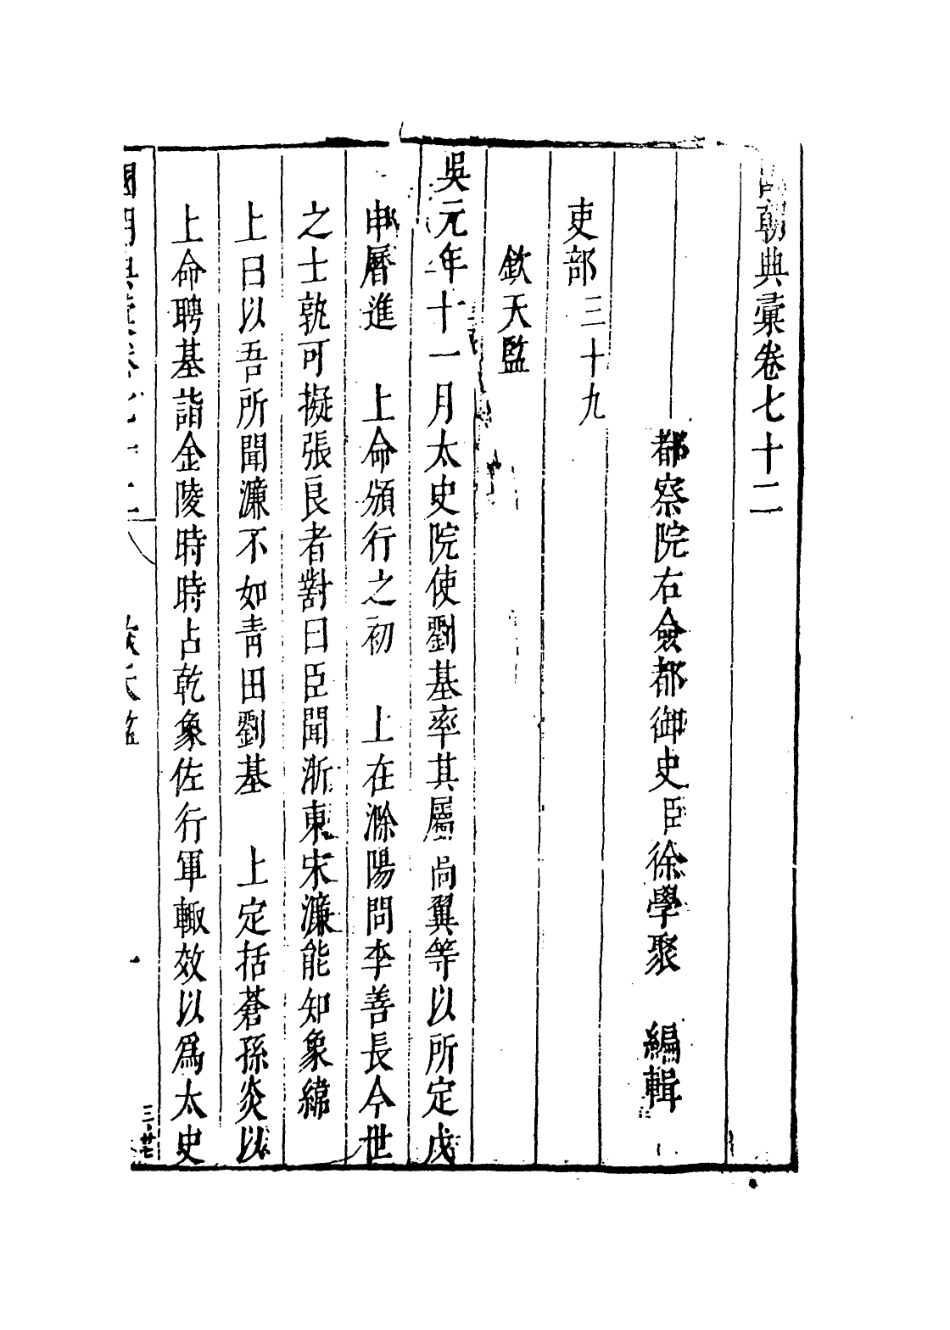 國朝典彙卷七十二
都察院右僉都御史臣徐學聚 編輯
吏部三十九
欽天監
吳元年十一月太史院使劉基率其屬尚翼等以所定戊
申曆進 上命頒行之初 上在滁陽問李善長今世
之士孰可擬張良者對曰臣聞浙東宋濂能知象緯
上曰以吾所聞濂不如青田劉基 上定括蒼孫炎以
上命聘基詣金陵時時占乾象佐行軍輙效以爲太史
國朝典彙卷七十二 欽天監 一
三·廿七